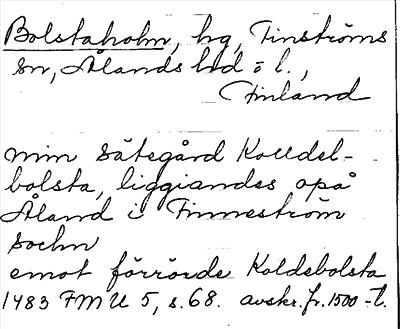 Bolstaholm, hg, Finströms
sn, Ålands hd o l.,
Finland
min sätegård Kolldel-
bolsta, liggiandes opå
Åland i Finneström
sochn
emot förrörde Koldebolsta
1483 FMU 5, s.68. avskr. fr. 1500-t.